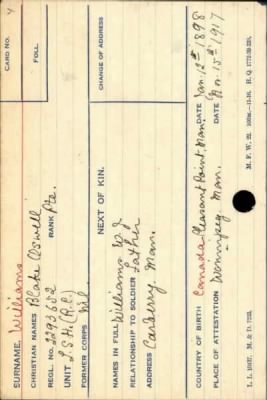 CARD NO.
FOLL.
SURNAME. Williams
CHRISTIAN NAMES Blake Oswell
REGL. NO. 2293652 RANK Pte.
UNIT L.S.H. (R.C.)
FORMER CORPS Nil
NEXT OF KIN.
CHANGE OF ADDRESS
NAMES IN FULL Williams W J
RELATIONSHIP TO SOLDIER Father
ADDRESS Carberry, Man.
COUNTRY OF BIRTH Canada Pleasant Point, Man. DATE Jan. 12th 1898
PLACE OF ATTESTATION Winnipeg Man. DATE 15th 1917
M. F. W. 22.
H. Q. 1772-39-339.